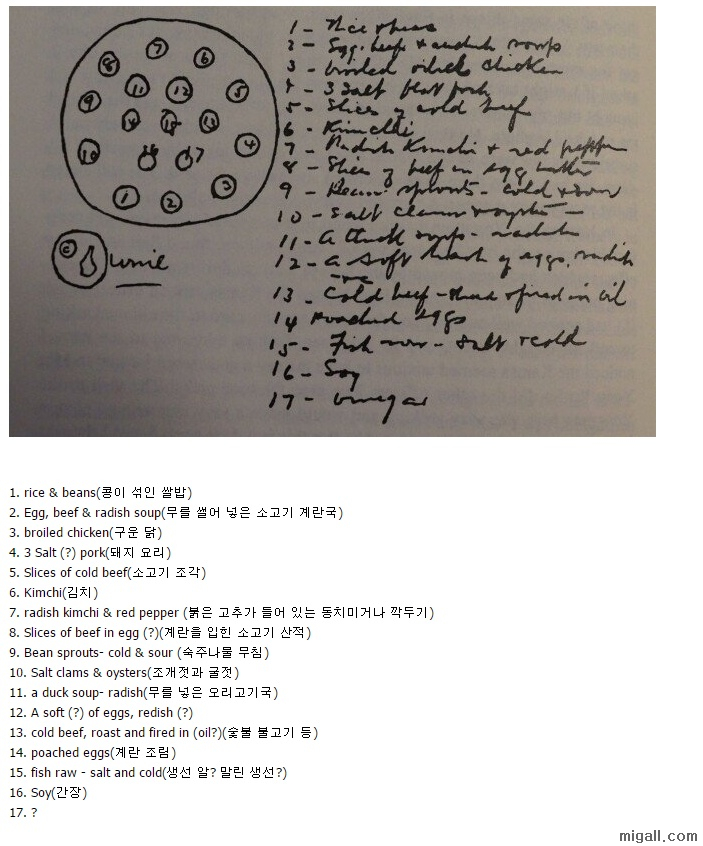 7
8 6
9 11 12 5
14 15 13
10 16 17 4
1 2 3
C wine
1 - Rice & beans
2 - Egg, beef & radish soup
3 - broiled chicken
4 - 3 Salt pork
5 - Slices of cold beef
6 - Kimchi
7 - Radish Kimchi & red pepper
8 - Slices of beef in egg batter
9 - Bean sprouts - cold & sour
10 - Salt clams & oysters -
11 - A thick soup - radish
12 - A soft hash of eggs, radish
13 - Cold beef - fried in oil
14 Poached eggs
15 - Fish - salt & cold
16 - Soy
17 - vinegar
1. rice & beans(콩이 섞인 쌀밥)
2. Egg, beef & radish soup(무를 썰어 넣은 소고기 계란국)
3. broiled chicken(구운 닭)
4. 3 Salt (?) pork(돼지 요리)
5. Slices of cold beef(소고기 조각)
6. Kimchi(김치)
7. radish kimchi & red pepper (붉은 고추가 들어 있는 동치미거나 깍두기)
8. Slices of beef in egg (?)(계란을 입힌 소고기 산적)
9. Bean sprouts- cold & sour (숙주나물 무침)
10. Salt clams & oysters(조개젓과 굴젓)
11. a duck soup- radish(무를 넣은 오리고기국)
12. A soft (?) of eggs, redish (?)
13. cold beef, roast and fired in (oil?)(숯불 불고기 등)
14. poached eggs(계란 조림)
15. fish raw - salt and cold(생선 알? 말린 생선?)
16. Soy(간장)
17. ?
migall.com